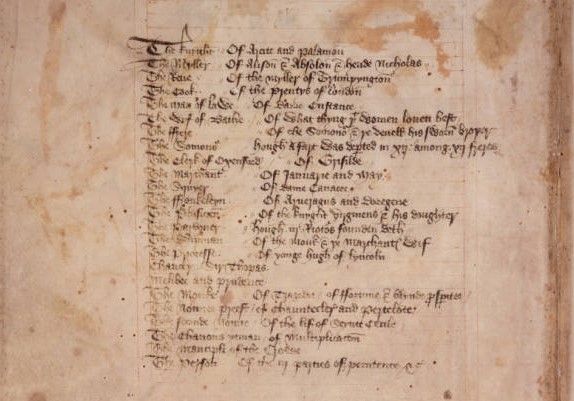 The knyght Of Arcite and Palamon
The Myller Of Alison & Absolon & hende Nicholas
The Reve Of the myller of Trumpyngton
The Cook Of the prentys of london
The man of lawe Of dame Custance
The Wyf of Bathe Of what thyng yt women loveth best
The ffrere Of the Somono & ye devell his sworn
The Somono hough a fart was dep̱ted in xij among xij freres
The Clerk of Oxenford Of Grisilde
The Marchant Of Januarie and May
The Squyer Of dame Canacee
The ffrankeleyn Of Arveragus and doregene
The Phisicien Of the knyght virginius & his doughter
The Pardoner hough iij Riotos founden deth
The Shipman Of the Monk & ye Marchantz Wif
The Prioresse Of yonge hugh of lyncoln
Chaucer Sir Thopas
Melibee and prudence
The Monke Of Trageds of ffortune & blynde
The Nonnes preest of Chauntecler and Pertelote
The seconde Nonne Of the lif of Seynt Cecile
The Chanons yoman of Multiplicacon
The Manciple of the Crowe
The Person Of the iij parties of penitence &c